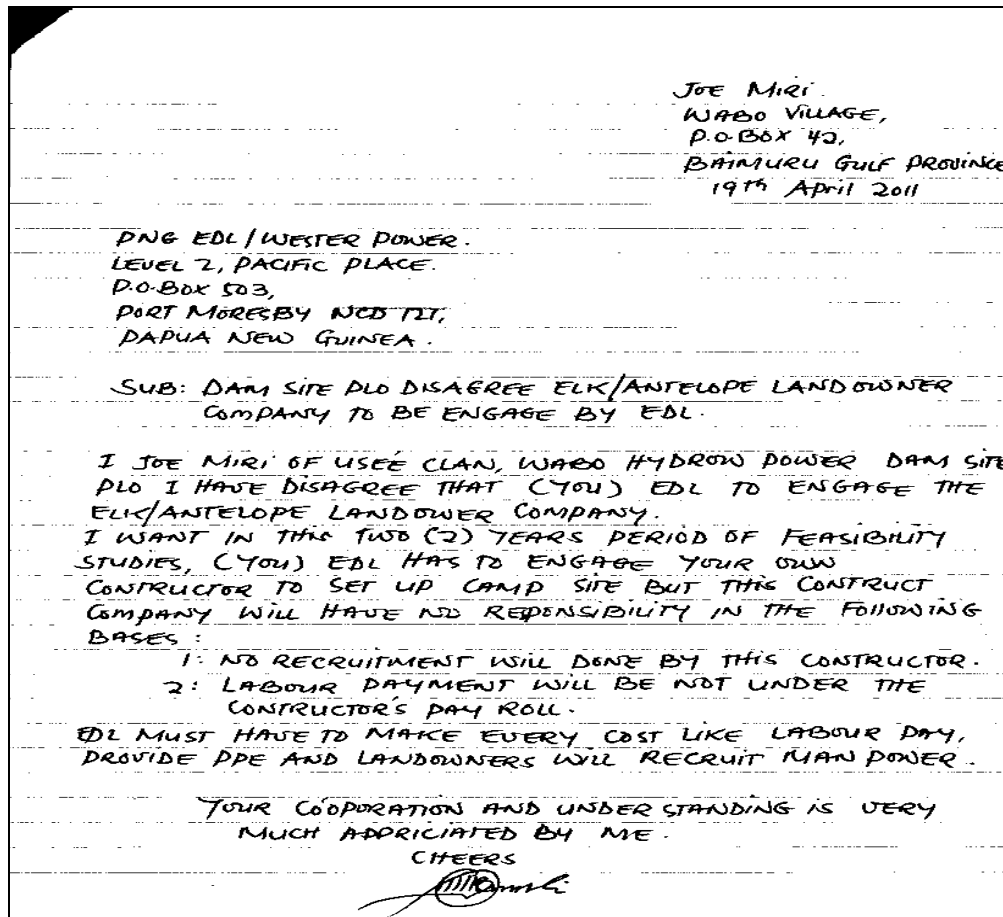 JOE MIRI.
WABO VILLAGE,
P.O.BOX 42,
BAIMURU GULF PROVINCE
19th April 2011
PNG EDL/WESTER POWER.
LEVEL 2, PACIFIC PLACE.
P.O.BOX 503,
PORT MORESBY NCD 121,
PAPUA NEW GUINEA.
SUB: DAM SITE PLO DISAGREE ELK/ANTELOPE LANDOWNER
COMPANY TO BE ENGAGE BY EDL.
I JOE MIRI OF USEE CLAN, WABO HYDROW POWER DAM SITE
PLO I HAVE DISAGREE THAT (YOU) EDL TO ENGAGE THE
ELK/ANTELOPE LANDOWER COMPANY.
I WANT IN THIS TWO (2) YEARS PERIOD OF FEASIBILITY
STUDIES, (YOU) EDL HAS TO ENGAGE YOUR OWN
CONTRUCTOR TO SET UP CAMP SITE BUT THIS CONTRUCT
COMPANY WILL HAVE NO RESPONSIBILITY IN THE FOLLOWING
BASES:
1: NO RECRUITMENT WILL DONE BY THIS CONTRUCTOR.
2: LABOUR PAYMENT WILL BE NOT UNDER THE
CONTRUCTOR'S PAY ROLL.
EDL MUST HAVE TO MAKE EVERY COST LIKE LABOUR PAY,
PROVIDE PPE AND LANDOWNERS WILL RECRUIT MAN POWER.
YOUR COOPORATION AND UNDERSTANDING IS VERY
MUCH APPRICIATED BY ME.
CHEERS